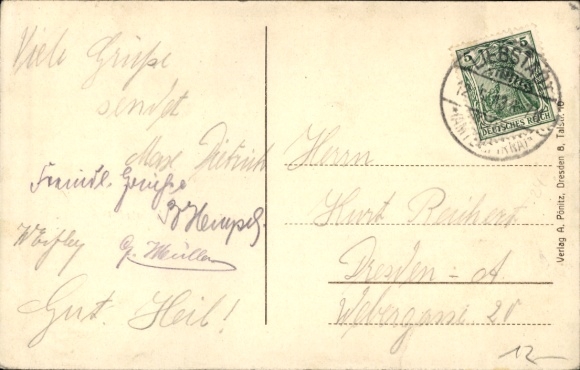 Viele Grüße
sendet
Max Dietrich
Freundl. Grüße
B Hempel.
G. Müller
Gut Heil!
5 5
DEUTSCHES REICH
LIEBSTADT
Herrn
Kurt Reichert
Dresden - A.
Webergasse 20
Verlag A. Pönitz, Dresden 8, Talstr. 16
12